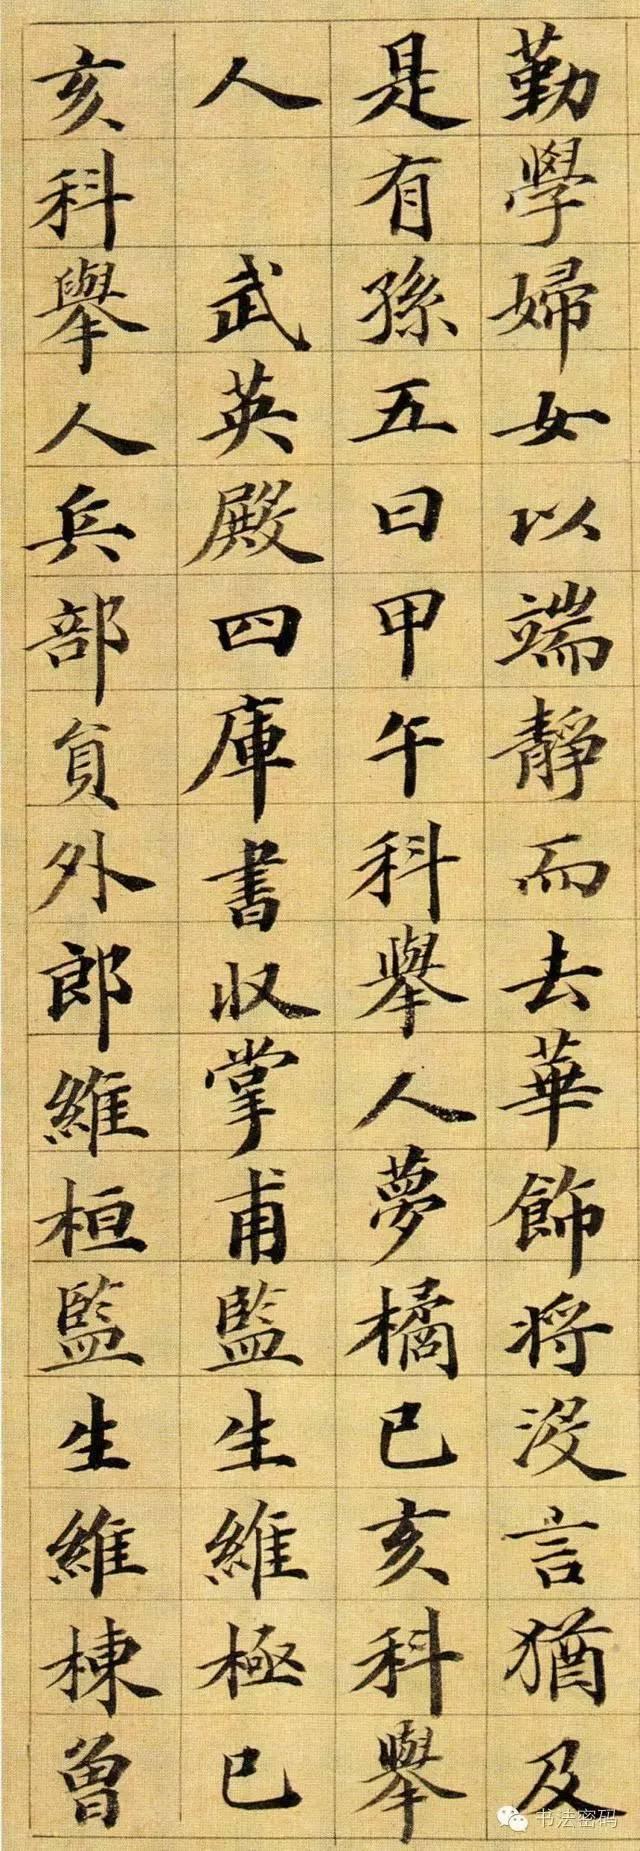 勤學婦女以端靜而去華飾將没言猶及
是有孫五曰甲午科舉人夢橘己亥科舉
人 武英殿四庫書收掌甫監生維極己
亥科舉人兵部員外郎維桓監生維棟曾
书法密码